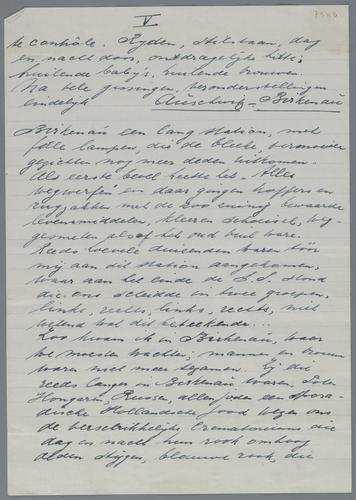 7540
V
te contrôle. Ryden, stilstaan, dag
en nacht door, ondragelijke hitte,
huilende baby's, huilende vrouwen.
Na vele gissingen, veronderstellingen
eindelijk Auschwitz - Birkenau
Birkenau een lang station, met
felle lampen, die de bleeke, vermoeide
gezichten nog meer deden uitkomen.
Als eerste bevel heette het "Alles
wegwerfen" en daar gingen koffers en
rugzakken met de zoo zuinig bewaarde
levensmiddelen, kleeren schoeisel, weg-
gesmeten alsof het oud vuil ware.
Reeds vele duizenden waren vóór
mij aan dit station aangekomen,
waar aan het einde de S.S. stond
die ons scheidde in twee groepen,
links, rechts, links, rechts, niet
wetend wat dit beteekende...
Zoo kwam ik in Birkenau, waar
we moesten wachten; mannen en vrouwen
waren niet meer tezamen. Zij die
reeds langer in Birkenau waren, Polen
Hongaren, Russen, allen Joden een spora-
dische Hollandsche Jood wezen ons
de verschrikkelijke Crematoriums die
dag en nacht hun rook omhoog
deden stijgen, blauwe rook, die